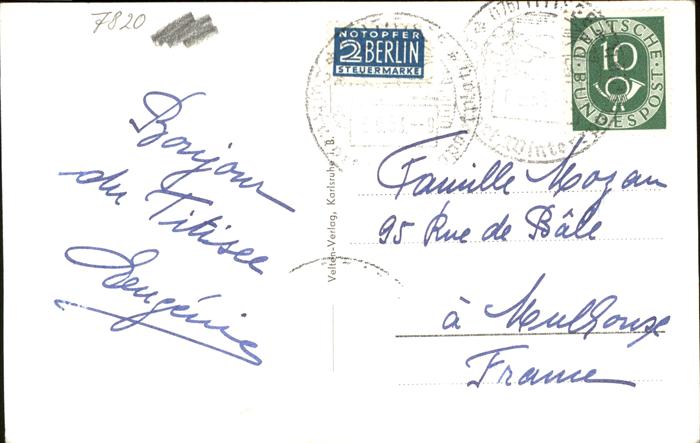 7820
NOTOPFER
2 BERLIN
STEUERMARKE
DEUTSCHE
BUNDESPOST
10
Bonjour
du Titisee
Eugénie
Velten-Verlag, Karlsruhe i. B.
Famille Mozan
95 Rue de Bâle
à Mulhouse
France